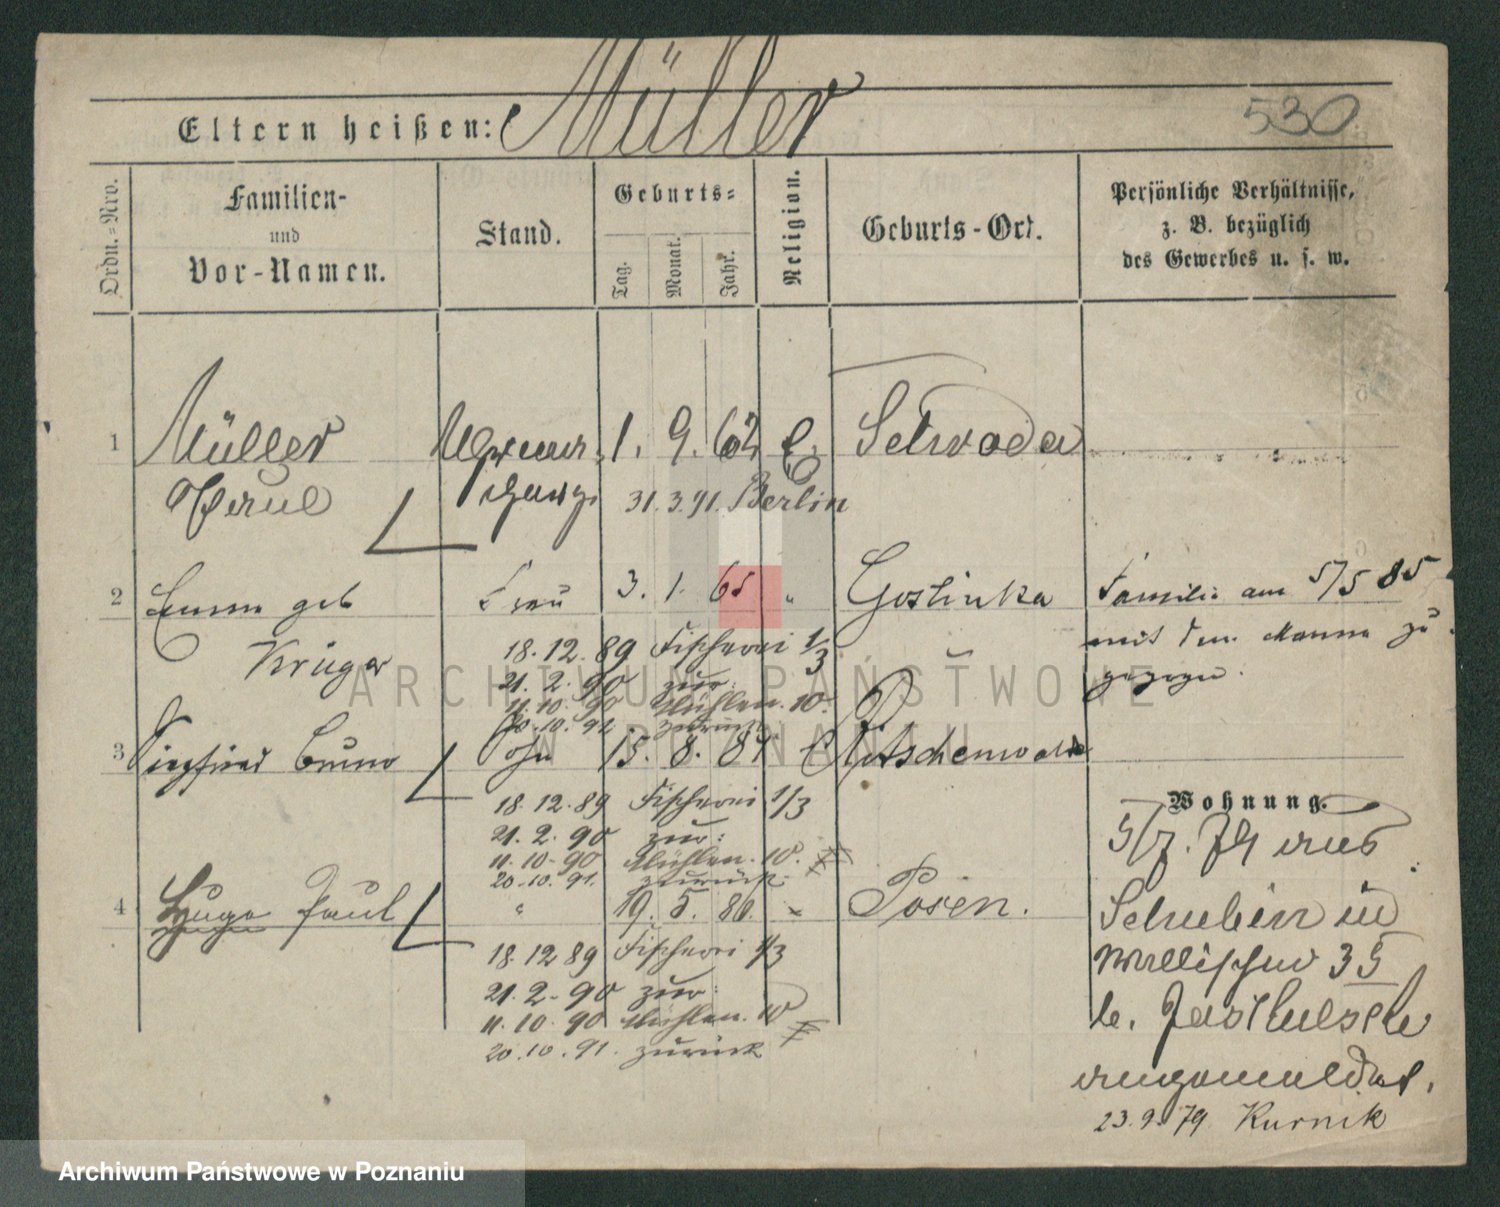 Eltern heißen: Müller
530
Ordn.=Nro.
Familien-
und
Vor-Namen.
Stand.
Geburts=
Tag.
Monat.
Jahr.
Religion.
Geburts-Ort.
Persönliche Verhältnisse,
z. B. bezüglich
des Gewerbes u. s. w.
1 Müller 1. 9. 62 E.
Paul 31.3.91. Berlin
2 Emma geb Frau 3. 1. 65 " Gostinka Familie am 5/5 85
Krüger 18.12.89 Fischerei 1/3 mit dem Manne zu
21.2.90 zur: gezogen.
11.10.90 Mühlen. 10.
20.10.91 zurück
3 Siegfried Bruno Sohn 15. 8. 84 E
18.12.89 Fischerei 1/3
Wohnung.
21.2.90 zur: 5/7. 79 aus
11.10.90 Mühlen. 10.
20.10.91. zurück
4 Hugo Paul " 19. 5. 86. Posen. Schubin in
18.12.89 Fischerei 1/3 Wallischei 35
21.2.90 zur:
11.10.90 Mühlen. 10 b.
20.10.91. zurück
angemeldet.
23.9.79 Kurnik
ARCHIWUM PAŃSTWOWE
W POZNANIU
Archiwum Państwowe w Poznaniu